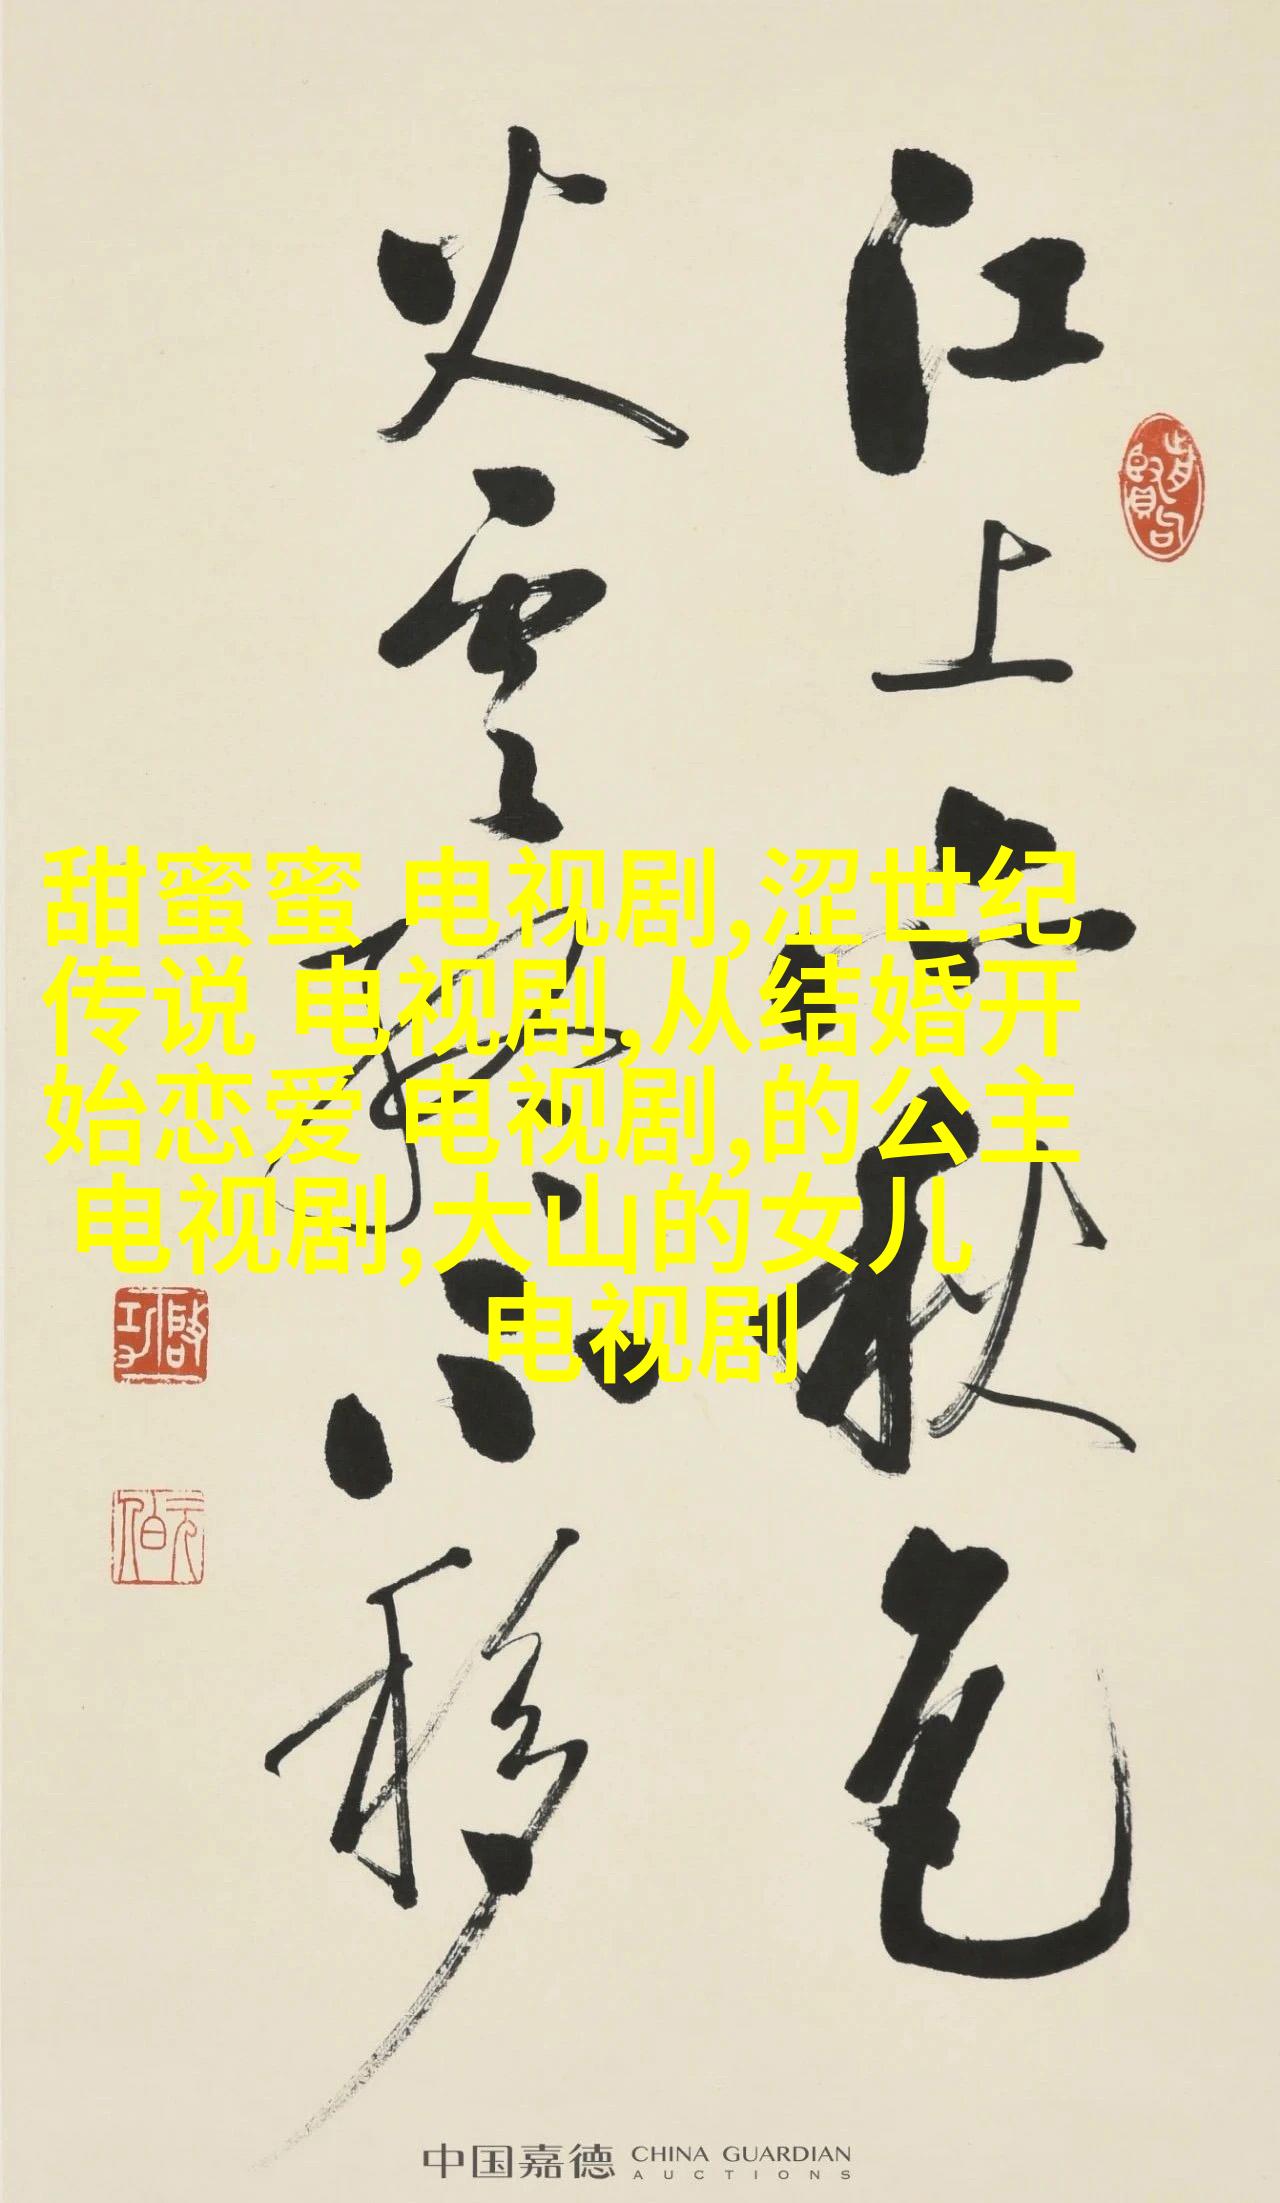 江上亦秋色
火雲終不移
啓功
元白
甜蜜蜜 电视剧,涩世纪
传说 电视剧,从结婚开
始恋爱 电视剧,的公主
电视剧,大山的女儿
电视剧
中国嘉德 CHINA GUARDIAN
AUCTIONS